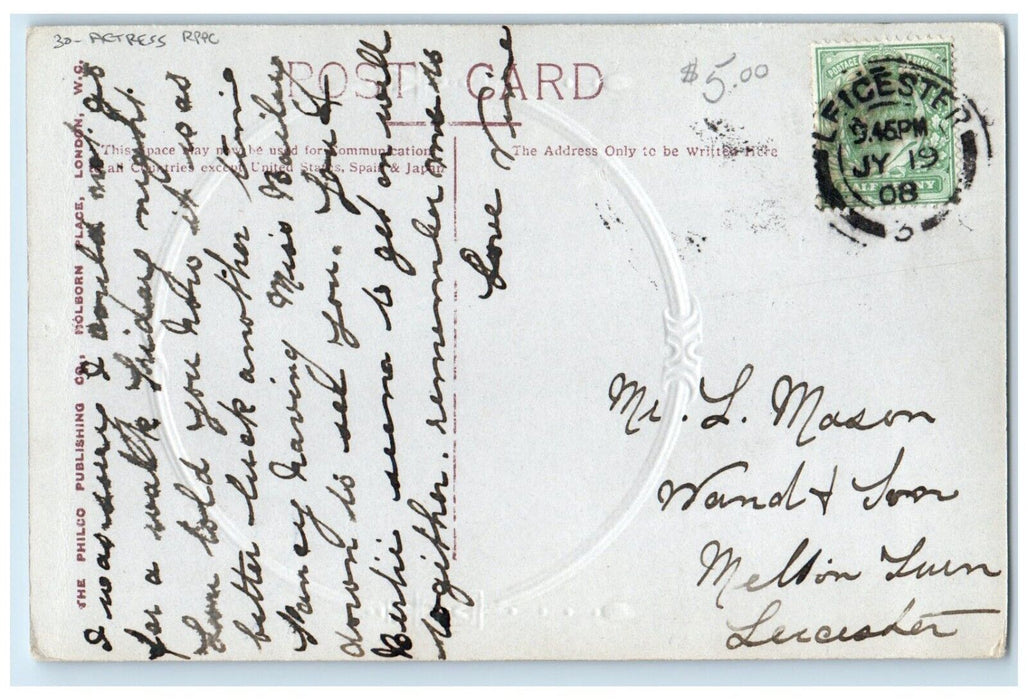 30- ACTRESS RPPC
POST CARD
$5.00
This Space may now be used for Communication
to all Countries except United States, Spain & Japan
The Address Only to be Written Here
THE PHILCO PUBLISHING CO., HOLBORN PLACE, LONDON, W.C.
LEICESTER
9.45PM
JY 19
08
3
POSTAGE REVENUE
HALFPENNY
I was sorry I could not go
for a walk Friday night.
Lou told you how it was
better luck another time
Nancy having Miss Bailey
down to see you. You &
seems to get on well
together. remember me to
Love
Mr. L. Mason
Wand & Son
Melton Turn
Leicester